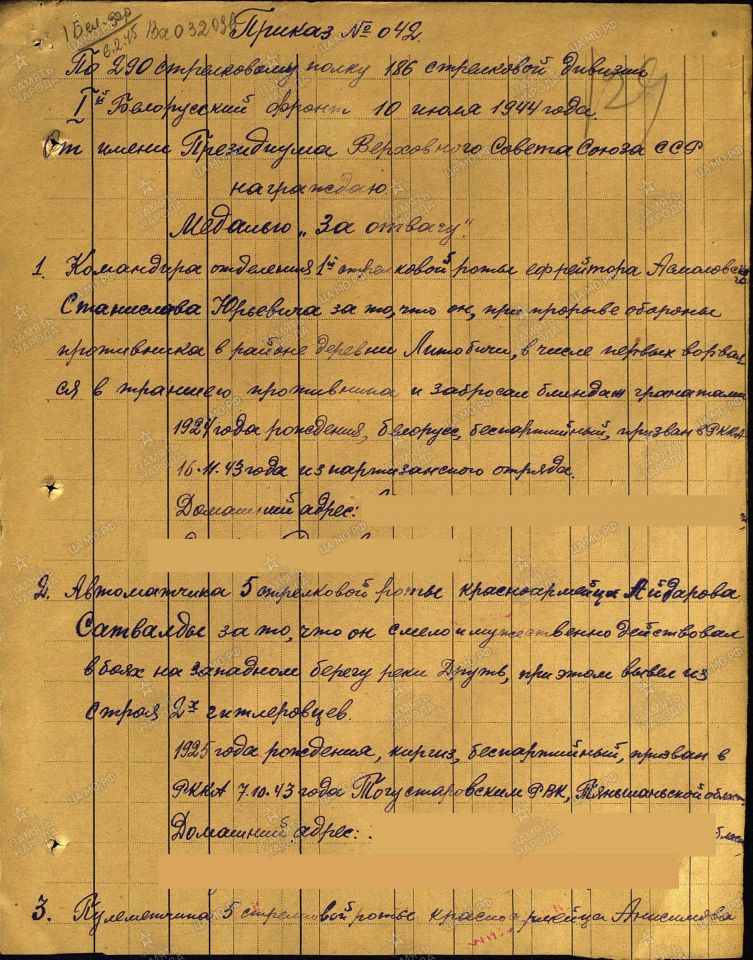 1 Бел. фр
6.2.45 Вх 03203
Приказ № 042.
По 290 стрелковому полку 186 стрелковой дивизии
I й Белорусский фронт 10 июля 1944 года.
От имени Президиума Верховного Совета Союза ССР
награждаю.
Медалью „За отвагу“.
1. Командира отделения 1й стрелковой роты ефрейтора Асмоловского
Станислава Юрьевича за то, что он, при прорыве обороны
противника в районе деревни Литовичи, в числе первых ворвал
ся в траншею противника и забросал блиндаж гранатами
1924 года рождения, белорус, беспартийный, призван в РККА
16.11.43 года из партизанского отряда.
Домашний адрес:
2. Автоматчика 5 стрелковой роты красноармейца Айдарова
Сатвалды за то, что он смело и мужественно действовал
в боях на западном берегу реки Друть, при этом вывел из
строя 2х гитлеровцев.
1925 года рождения, киргиз, беспартийный, призван в
РККА 7.10.43 года Тогустаровским РВК, Тяньшаньской област
Домашний адрес:
3. Пулеметчика 5 стрелковой роты красноармейца Анисимова
129
ПАМЯТЬ НАРОДА
ЦАМО.РФ